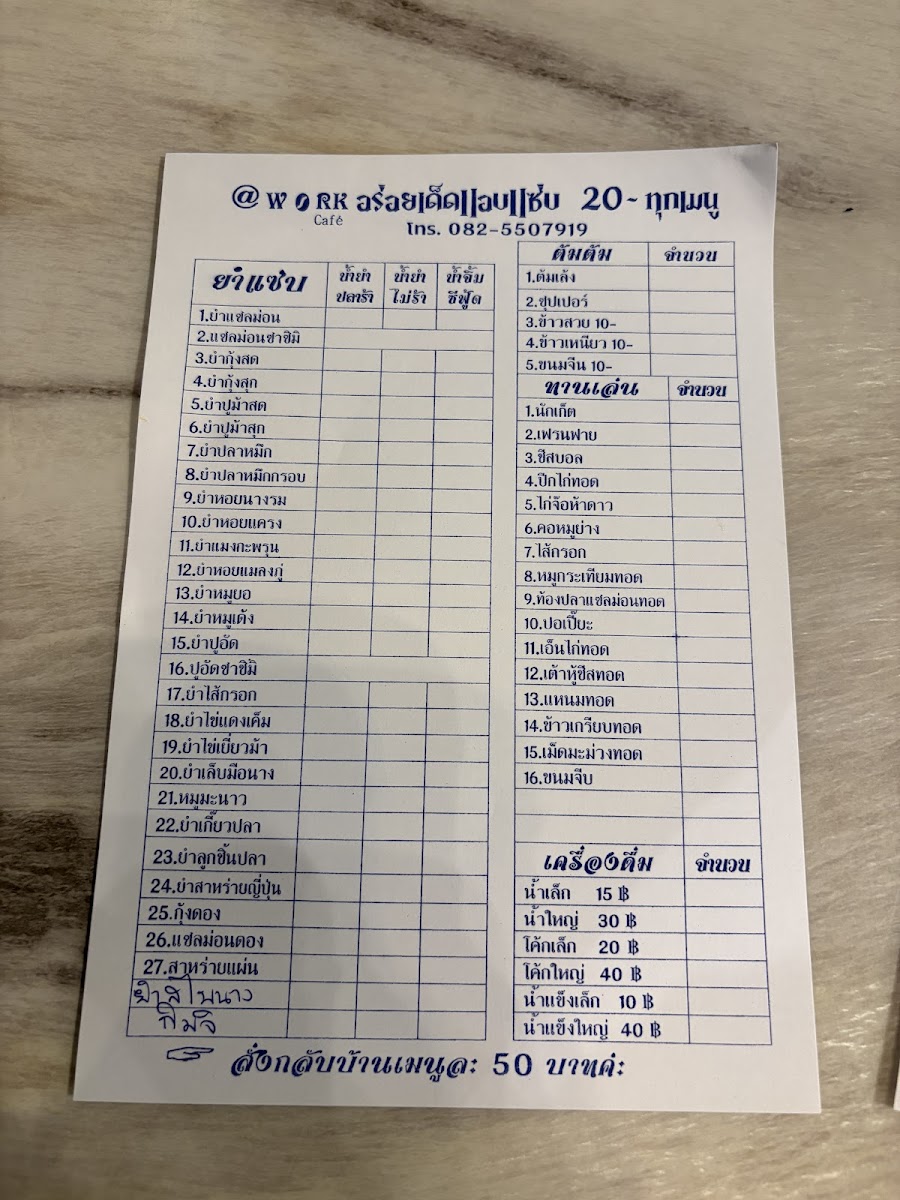 @ W O RK อร่อยเด็ดแอบแซ่บ 20 - ทุกเมนู
Café
โทร. 082-5507919
ยำแซบ น้ำยำปลาร้า น้ำยำไม่ร้า น้ำจิ้มซีฟู้ด
1.ยำแซลม่อน
2.แซลม่อนซาซิมิ
3.ยำกุ้งสด
4.ยำกุ้งสุก
5.ยำปูม้าสด
6.ยำปูม้าสุก
7.ยำปลาหมึก
8.ยำปลาหมึกกรอบ
9.ยำหอยนางรม
10.ยำหอยแครง
11.ยำแมงกะพรุน
12.ยำหอยแมลงภู่
13.ยำหมูยอ
14.ยำหมูเด้ง
15.ยำปูอัด
16.ปูอัดซาซิมิ
17.ยำไส้กรอก
18.ยำไข่แดงเค็ม
19.ยำไข่เยี่ยวม้า
20.ยำเล็บมือนาง
21.หมูมะนาว
22.ยำเกี๊ยวปลา
23.ยำลูกชิ้นปลา
24.ยำสาหร่ายญี่ปุ่น
25.กุ้งดอง
26.แซลม่อนดอง
27.สาหร่ายแผ่น
กิมจิ
ต้มตัม จำนวน
1.ต้มเล้ง
2.ซุปเปอร์
3.ข้าวสวย 10-
4.ข้าวเหนียว 10-
5.ขนมจีน 10-
ทานเล่น จำนวน
1.นักเก็ต
2.เฟรนฟาย
3.ชีสบอล
4.ปีกไก่ทอด
5.ไก่จ๊อห้าดาว
6.คอหมูย่าง
7.ไส้กรอก
8.หมูกระเทียมทอด
9.ท้องปลาแซลม่อนทอด
10.ปอเปี๊ยะ
11.เอ็นไก่ทอด
12.เต้าหู้ชีสทอด
13.แหนมทอด
14.ข้าวเกรียบทอด
15.เม็ดมะม่วงทอด
16.ขนมจีบ
เครื่องดื่ม จำนวน
น้ำเล็ก 15 ฿
น้ำใหญ่ 30 ฿
โค้กเล็ก 20 ฿
โค้กใหญ่ 40 ฿
น้ำแข็งเล็ก 10 ฿
น้ำแข็งใหญ่ 40 ฿
สั่งกลับบ้านเมนูละ 50 บาทค่ะ